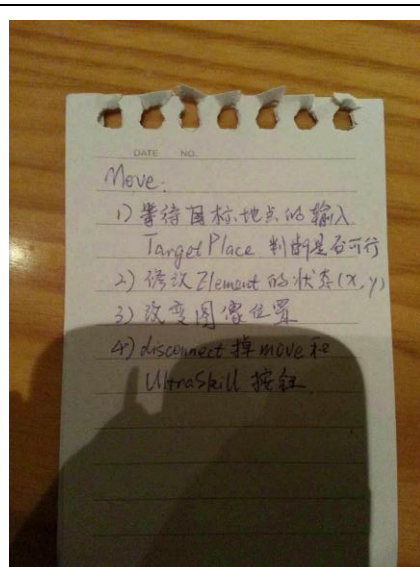 DATE NO.
Move:
1) 等待目标地点的输入
TargetPlace 判断是否可行
2) 修改Element的状态(x,y)
3) 改变图像位置
4) disconnect掉move和
UltraSkill 按钮